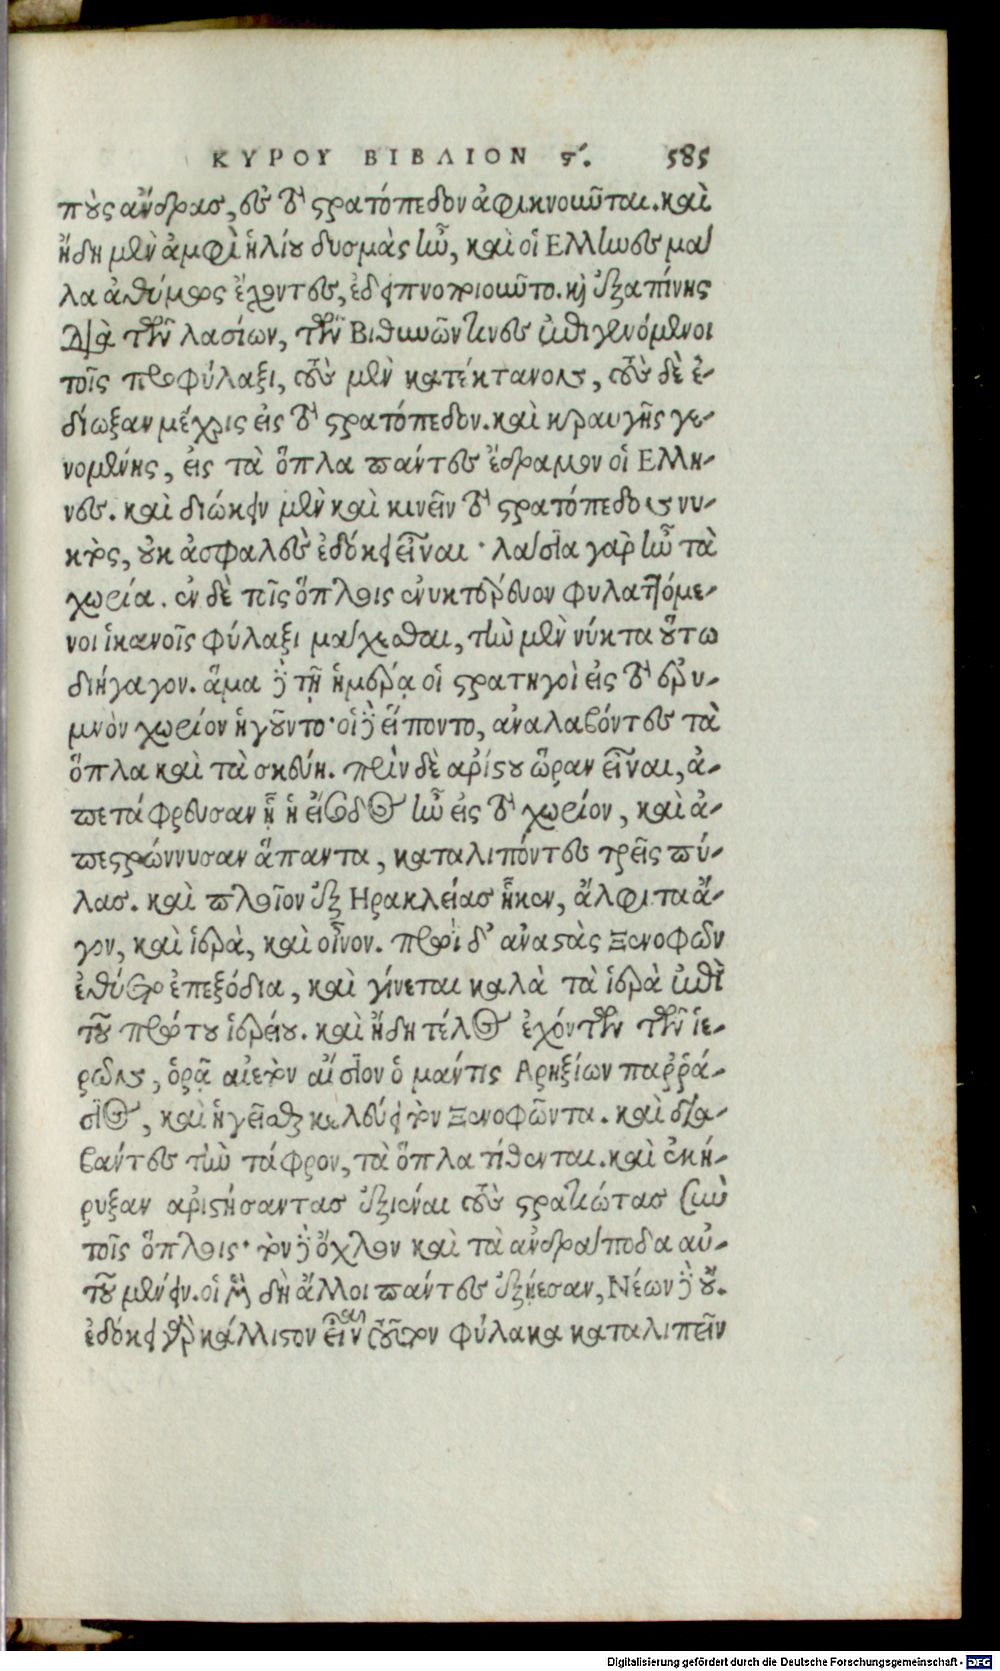 ΚΥΡΟΥ ΒΙΒΛΙΟΝ ϛ΄. 585
ποὺς ἄνδρας, ἐς τὸ στρατόπεδον ἀφικνοῦνται. καὶ
ἤδη μὲν ἀμφὶ ἡλίου δυσμὰς ἦν, καὶ οἱ Ελληνες μά
λα ἀθύμως ἔχοντες, ἐδειπνοποιοῦντο. καὶ ἐξαπίνης
διὰ τῶν λασίων, τῶν Βιθυνῶν τινες ἐπιγενόμενοι
τοῖς προφύλαξι, τοὺς μὲν κατέκτανον, τοὺς δὲ ἐ-
δίωξαν μέχρις εἰς τὸ στρατόπεδον. καὶ κραυγῆς γε-
νομένης, εἰς τὰ ὅπλα πάντες ἔδραμον οἱ Ελλη-
νες. καὶ διώκειν μὲν καὶ κινεῖν τὸ στρατόπεδον νυ-
κτὸς, οὐκ ἀσφαλὲς ἐδόκει εἶναι· λάσια γὰρ ἦν τὰ
χωρία. ἐν δὲ τοῖς ὅπλοις ἐνυκτέρευον φυλαττόμε-
νοι ἱκανοῖς φύλαξι μάχεσθαι, τὴν μὲν νύκτα οὕτω
διήγαγον. ἅμα δὲ τῇ ἡμέρᾳ οἱ στρατηγοὶ εἰς τὸ ἐρυ-
μνὸν χωρίον ἡγοῦντο· οἱ δὲ εἵποντο, ἀναλαβόντες τὰ
ὅπλα καὶ τὰ σκεύη. πρὶν δὲ ἀρίστου ὥραν εἶναι, ἀ-
πετάφρευσαν ᾗ ἡ εἴσοδος ἦν εἰς τὸ χωρίον, καὶ ἀ-
πεστρώννυσαν ἅπαντα, καταλιπόντες τρεῖς πύ-
λας. καὶ πλοῖον ἐξ Ηρακλείας ἧκεν, ἄλφιτα ἄ-
γον, καὶ ἱερὰ, καὶ οἶνον. πρωῒ δ' ἀναστὰς Ξενοφῶν
ἐθύετο ἐπεξόδια, καὶ γίνεται καλὰ τὰ ἱερὰ ἐπὶ
τοῦ πρώτου ἱερείου. καὶ ἤδη τέλος ἐχόντων τῶν ἱε-
ρῶν, ὁρᾷ αἰετὸν αἴσιον ὁ μάντις Αρηξίων παῤῥά-
σιος, καὶ ἡγεῖσθαι κελεύει τὸν Ξενοφῶντα. καὶ δια-
βάντες τὴν τάφρον, τὰ ὅπλα τίθενται. καὶ ἐκή-
ρυξαν ἀριστήσαντας ἐξιέναι τοὺς στρατιώτας σὺν
τοῖς ὅπλοις· τὸν δὲ ὄχλον καὶ τὰ ἀνδράποδα αὐ-
τοῦ μένειν. οἱ μὲν δὴ ἄλλοι πάντες ἐξῄεσαν, Νέων δὲ οὔ.
ἐδόκει γὰρ κάλλιστον εἶναι τοῦτον φύλακα καταλιπεῖν